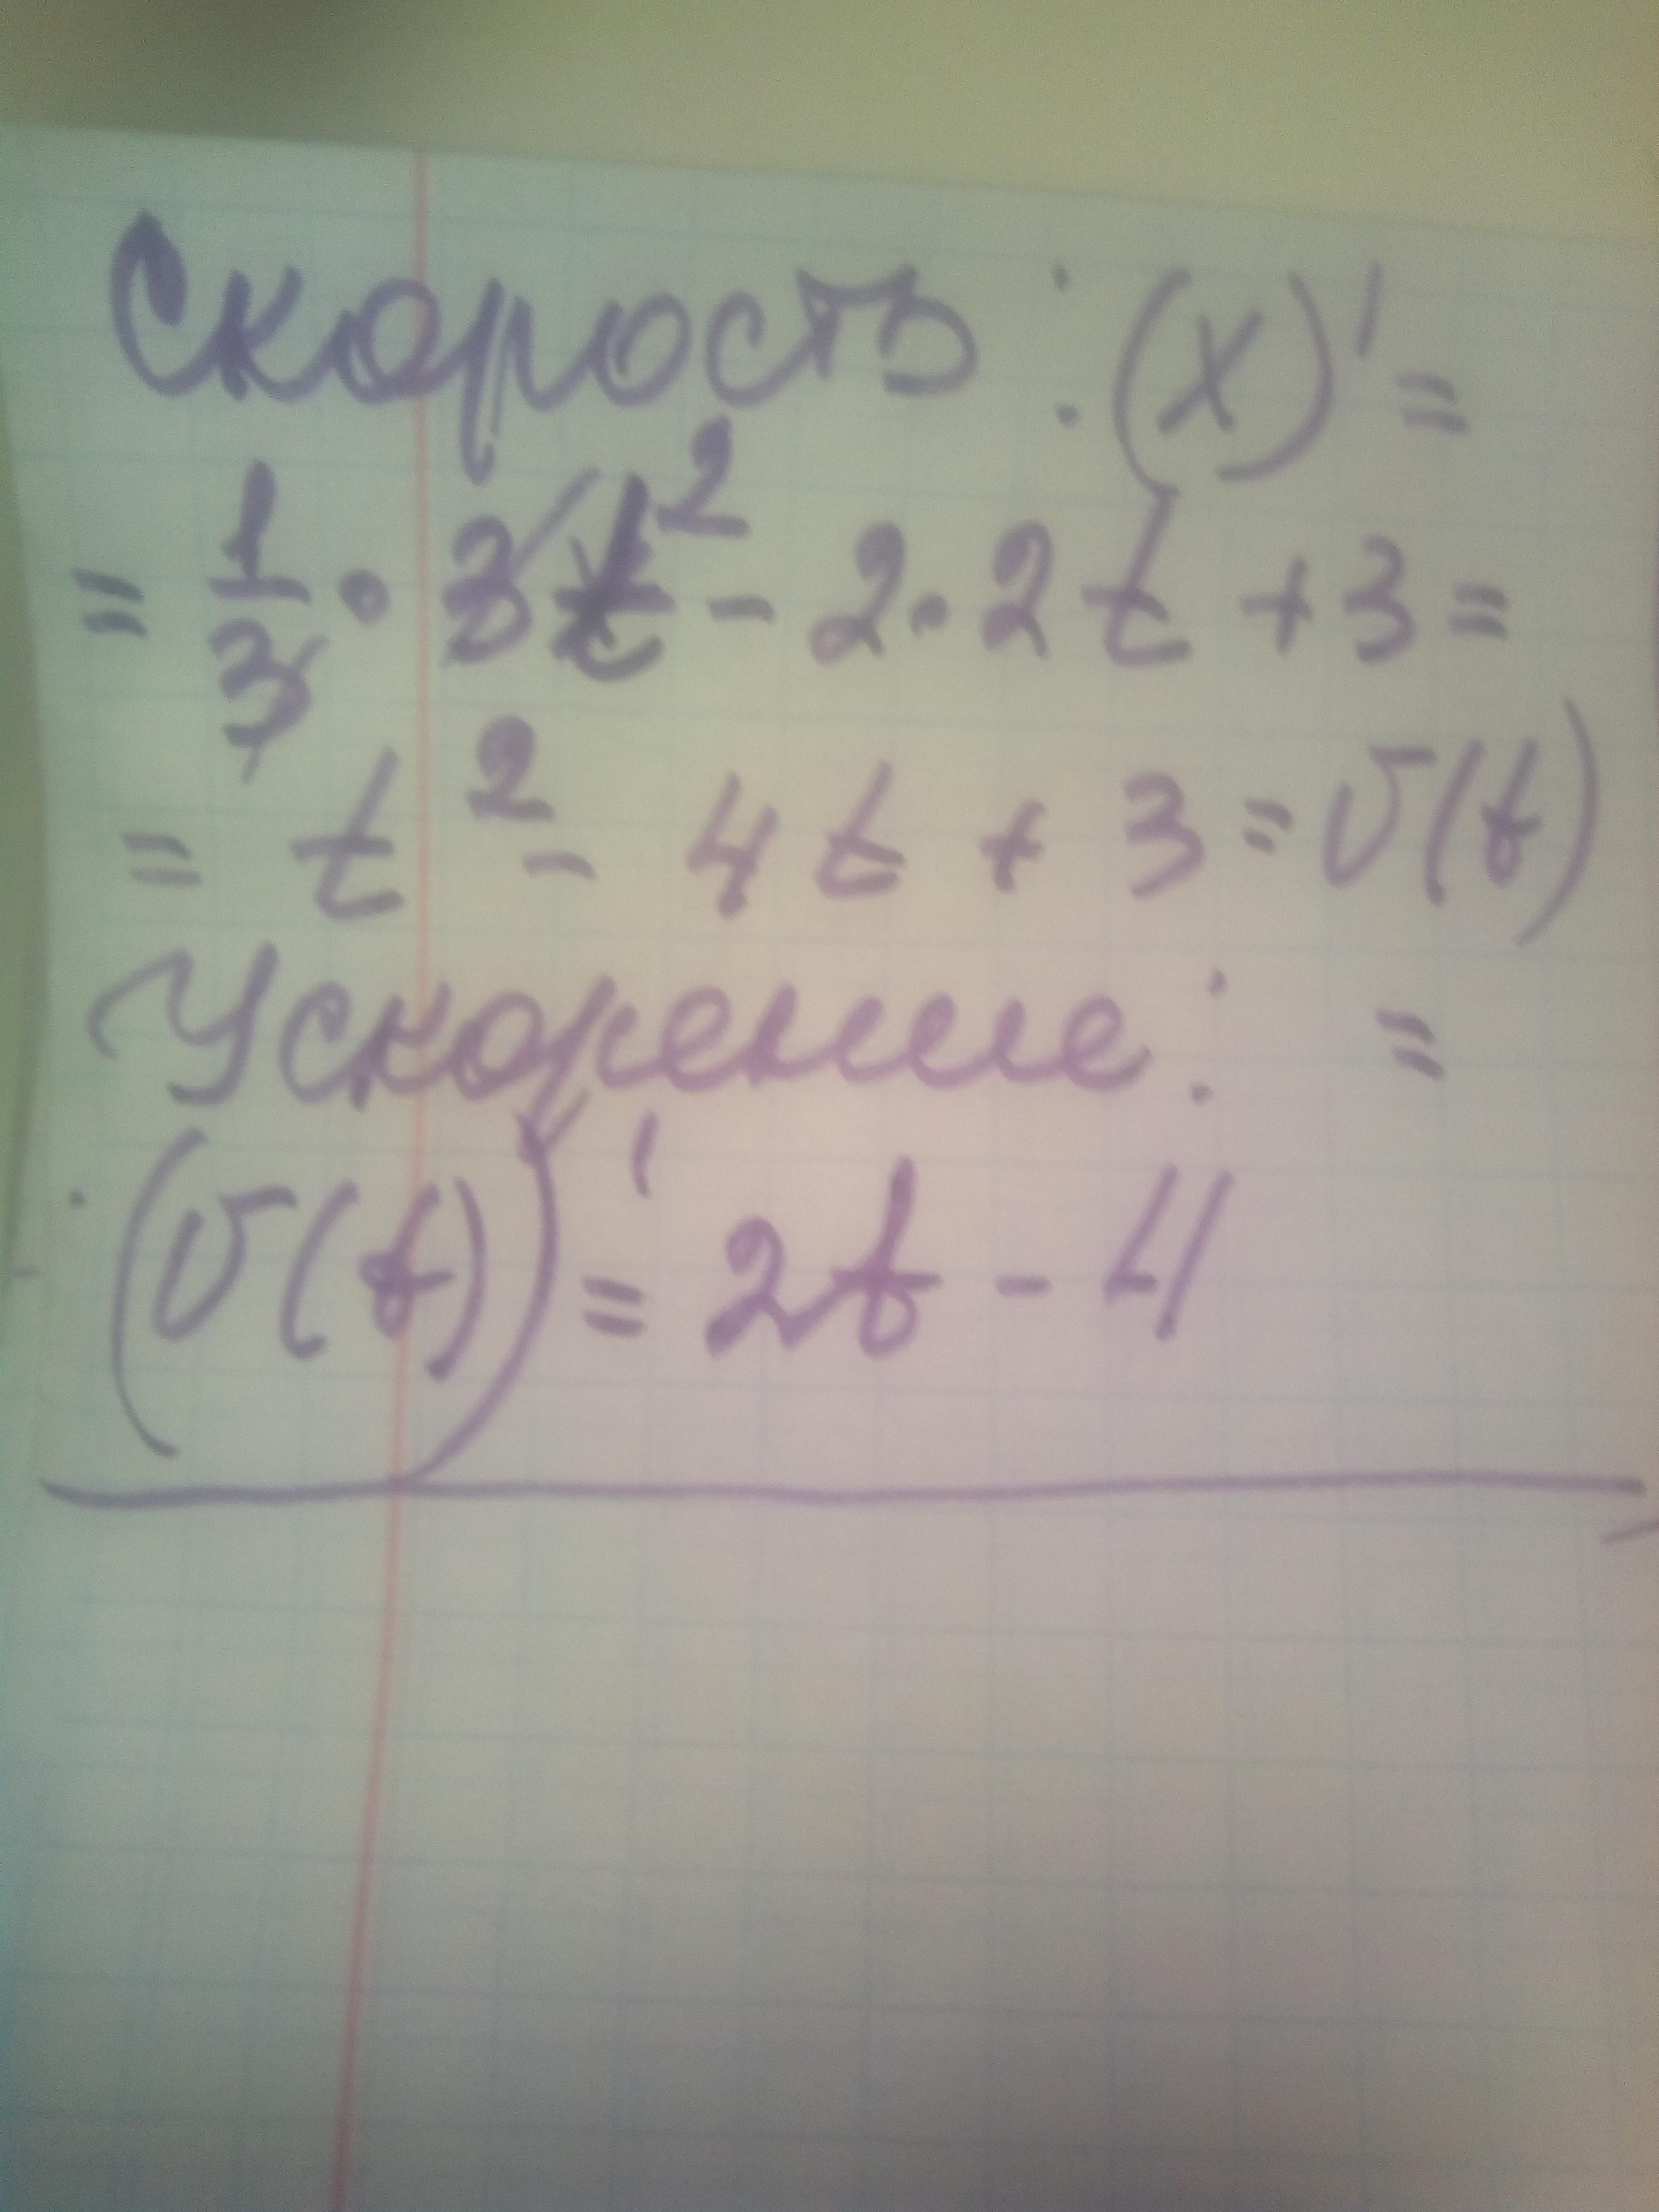 Скорость: (x)' =
= 1/3 • 3t² - 2•2t + 3 =
= t² - 4t + 3 = v(t)
Ускорение: =
(v(t))' = 2t - 4